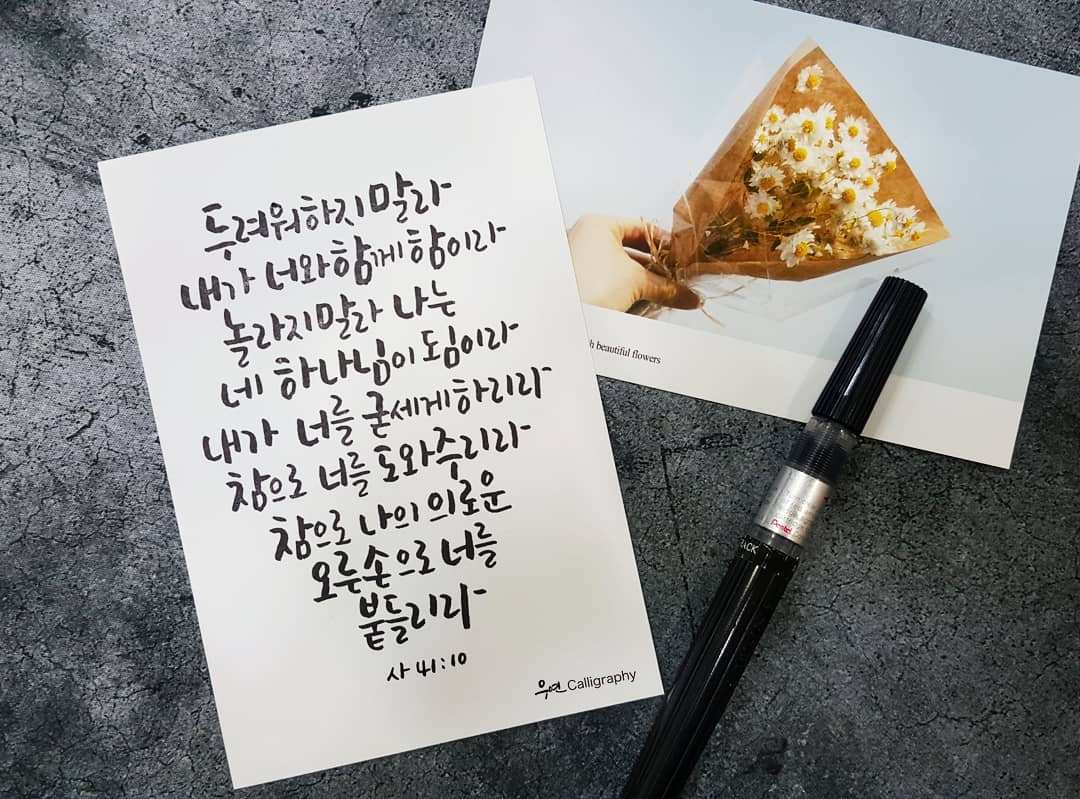 두려워하지말라
내가 너와함께함이라
놀라지말라 나는
네 하나님이 됨이라
내가 너를 굳세게하리라
참으로 너를 도와주리라
참으로 나의 의로운
오른손으로 너를
붙들리라
사 41:10
우연 Calligraphy
h beautiful flowers
Pentel